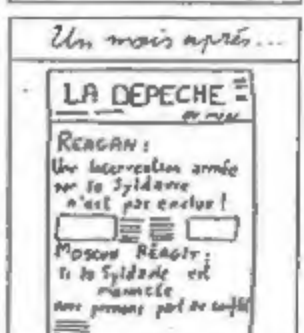 Un mois après...
LA DEPECHE
REAGAN :
Une intervention armée
sur la Syldavie
n'est pas exclue !
MOSCOU RÉAGIT :
Si la Syldavie est
menacée
nous prenons part au conflit